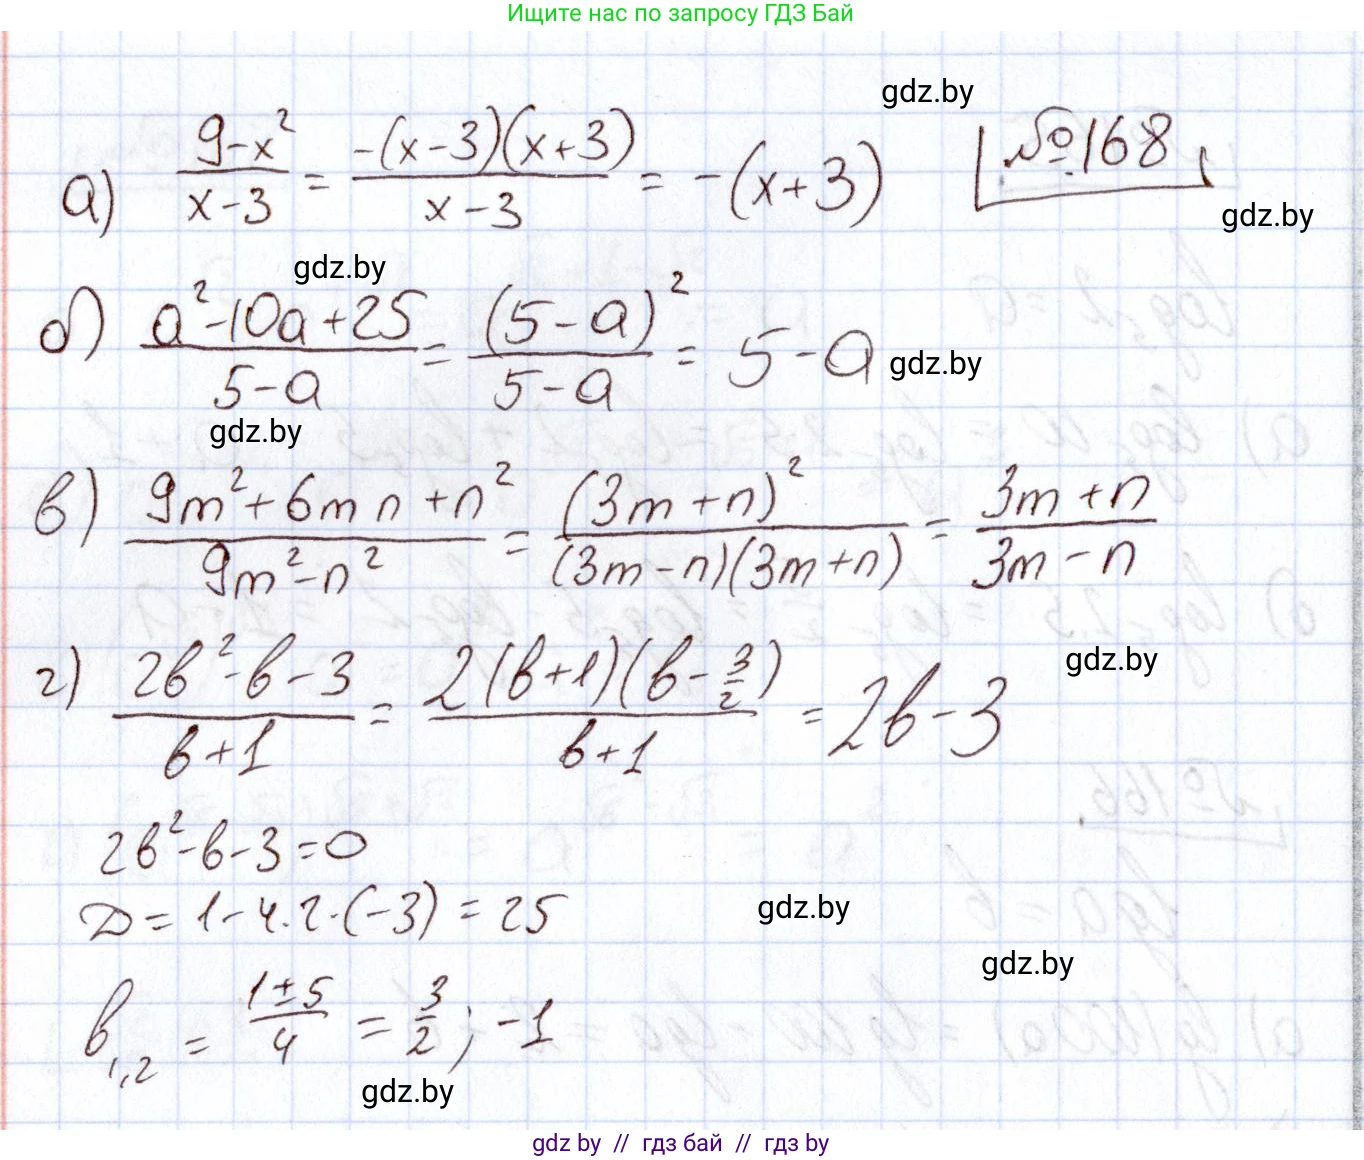 Ищите нас по запросу ГДЗ Бай
gdz.by
а) (9-x²)/(x-3) = (-(x-3)(x+3))/(x-3) = -(x+3)
№168
gdz.by
gdz.by
б) (a²-10a+25)/(5-a) = (5-a)²/(5-a) = 5-a
gdz.by
gdz.by
в) (9m²+6mn+n²)/(9m²-n²) = (3m+n)²/((3m-n)(3m+n)) = (3m+n)/(3m-n)
г) (2в²-в-3)/(в+1) = (2(в+1)(в-3/2))/(в+1) = 2в-3
gdz.by
2в²-в-3=0
Д=1-4·2·(-3)=25
gdz.by
gdz.by
в₁,₂ = (1±5)/4 = 3/2; -1
gdz.by
gdz by // гдз бай // гдз by